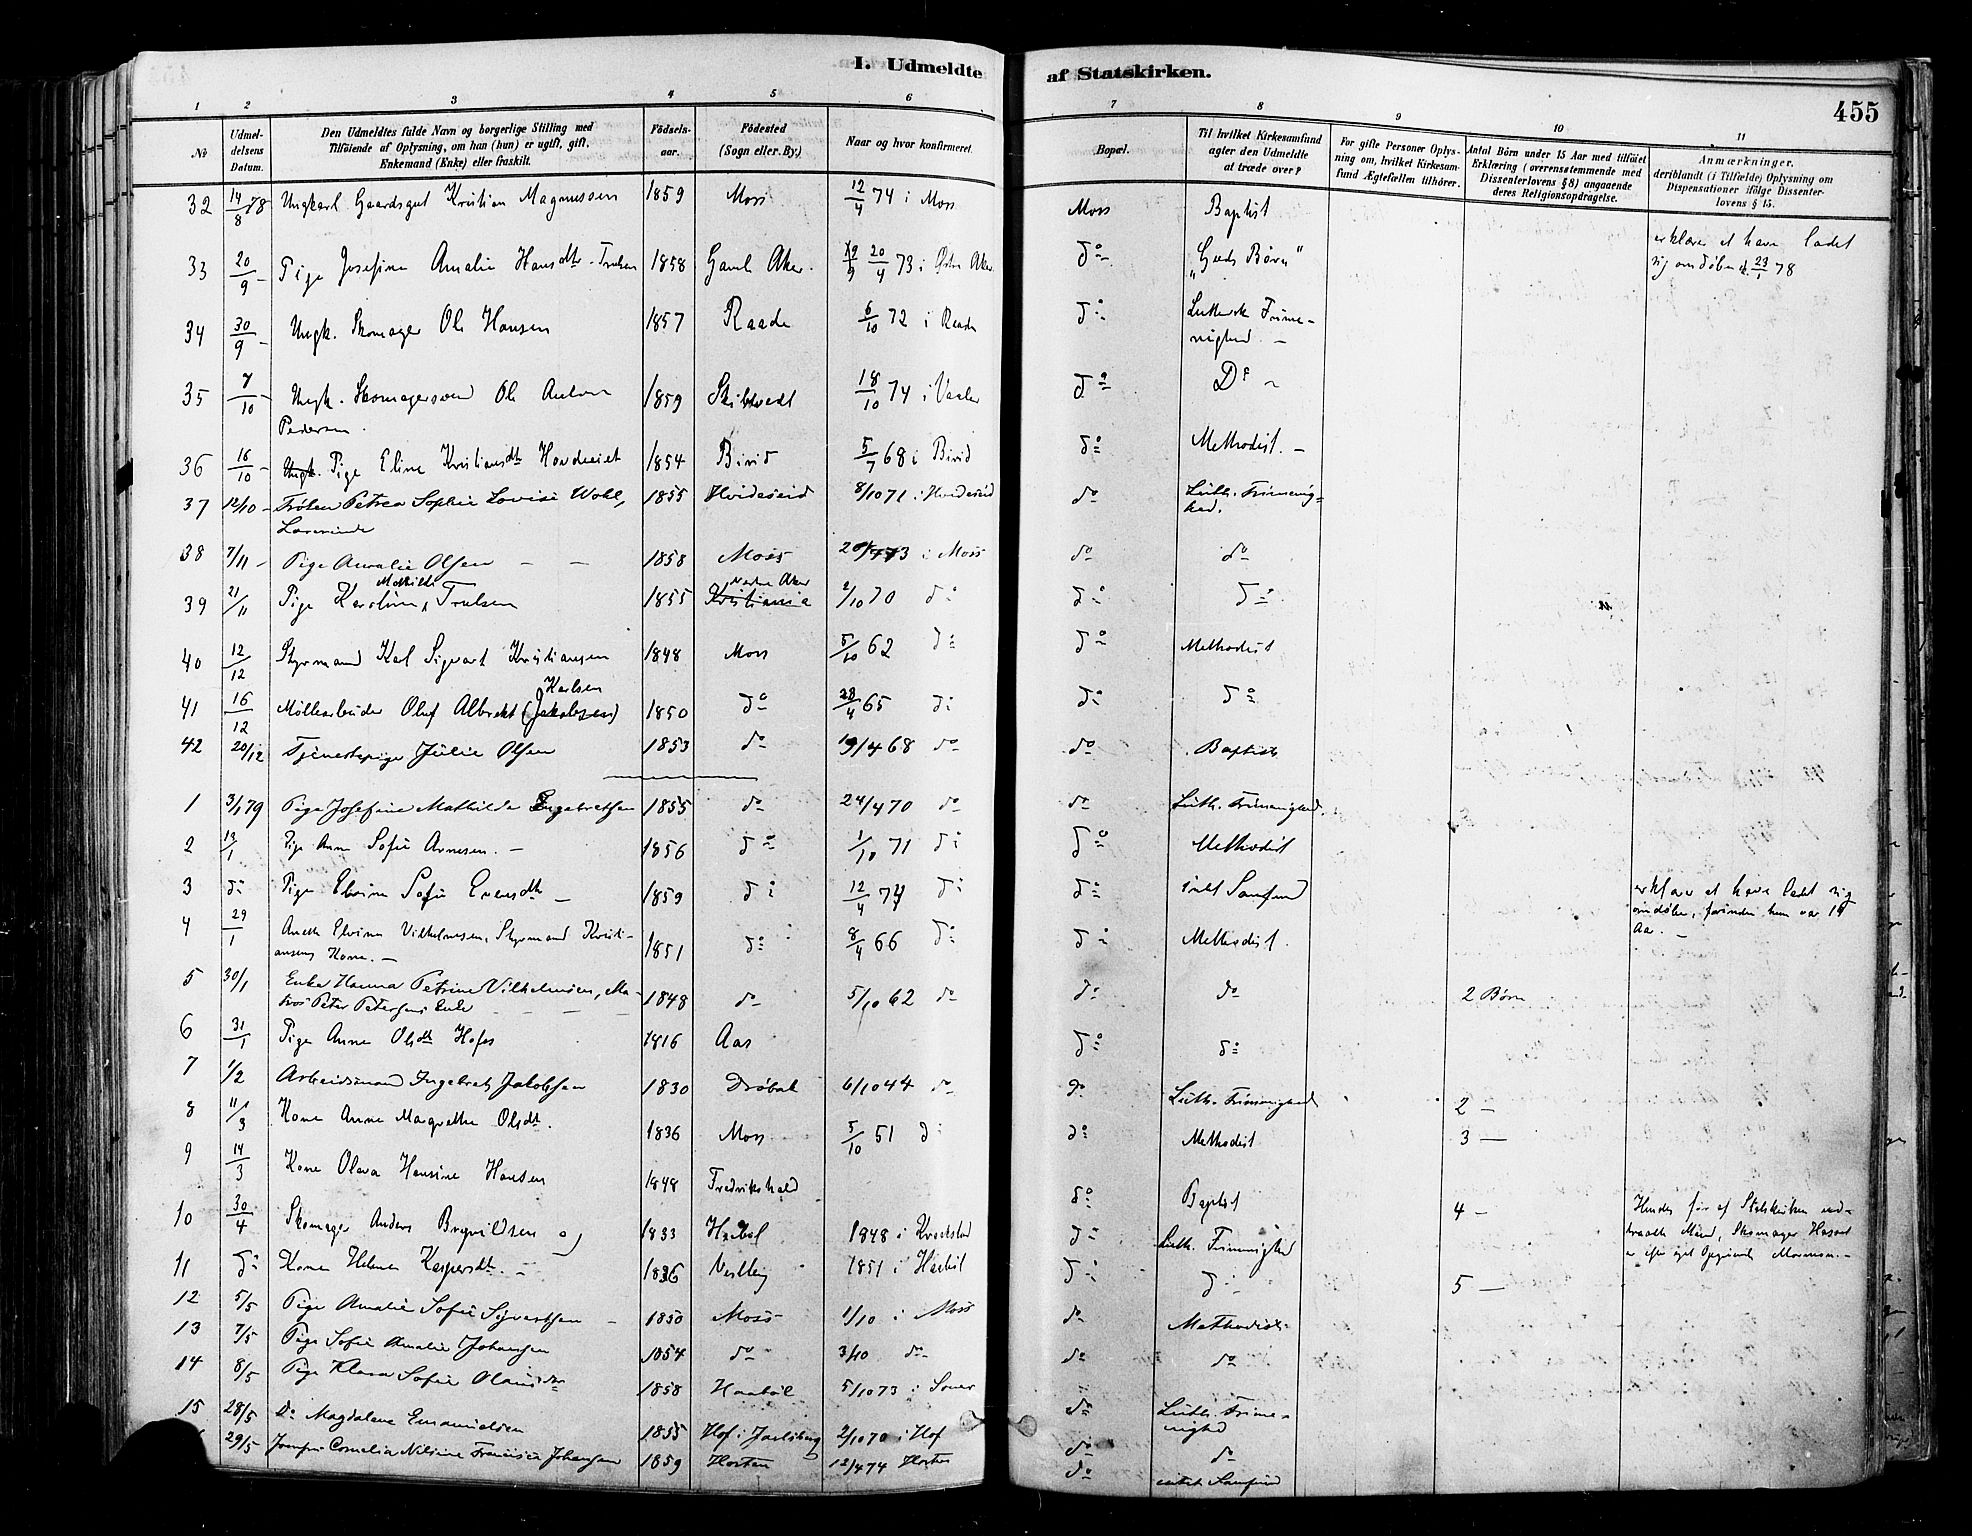 I. Udmeldte af Statskirken.
455
1 2 3 4 5 6 7 8 9 10 11
№
Udmeldelsens Datum.
Den Udmeldtes fulde Navn og borgerlige Stilling med Tilföiende af Oplysning, om han (hun) er ugift, gift, Enkemand (Enke) eller fraskilt.
Födselsaar.
Födested (Sogn eller By.)
Naar og hvor konfirmeret.
Bopæl.
Til hvilket Kirkesamfund agter den Udmeldte at træde over?
For gifte Personer Oplysning om, hvilket Kirkesamfund Ægtefællen tilhörer.
Antal Börn under 15 Aar med tilföiet Erklæring (overensstemmende med Dissenterlovens § 8) angaaende deres Religionsopdragelse.
Anmærkninger, deriblandt (i Tilfælde) Oplysning om Dispensationer ifölge Dissenterlovens § 15.
32 14/8 78 Ungkarl Gaardsgut Kristian Magnussen 1859 Moss 12/4 74 i Moss Moss Baptist
33 20/9 – Pige Josefine Amalie Hansdtr. Trulsen 1858 Gaml. Aker. 20/4 73 i Østre Aker do „Guds Børn“ erklærer at have ladet sig omdøbe d. 23/1 78
34 30/9 – Ungk. Skomager Ole Hansen 1857 Raade 6/10 72 i Raade do Luthersk Frimenighed. –
35 7/10 – Ungk. Skomagersvend Ole Anton Pedersen. 1859 Skibtvedt 18/10 74 i Vaaler do Do
36 16/10 – Pige Eline Kristiansdtr 1854 Birid 5/7 68 i Birid do Methodist. –
37 12/10 – Frøken Petrea Sophie Lovise Wohl, Lærerinde 1855 Hvideseid 8/10 71 i Hvideseid do Luth. Frimenighed.
38 7/11 – Pige Amalie Olsen – – 1858 Moss 20/4 73 i Moss do do
39 21/11 Pige Karoline Mathilde Trulsen 1855 Kristiania Vestre Aker 2/10 70 do do do
40 12/12 Styrmand Karl Sigvart Kristiansen 1848 Moss 5/10 62 do do Methodist
41 16/12 Møllearbeider Oluf Albrekt (Jakobsen) Karlsen 1850 do 28/4 65 do do do
42 20/12 Tjenestepige Julie Olsen 1853 do 19/4 68 do do Baptist
1 3/1 79 Pige Josefine Mathilde Engebretsen 1855 do 24/4 70 do do Luth. Frimenighed.
2 13/1 Pige Anne Sofie Arnesen. – 1856 do 1/10 71 do do Methodist
3 do Pige Elvine Sofie Evensdtr – 1859 do 12/4 74 do do intet Samfund erklærer at have ladet sig omdøbe, forinden hun var 19 Aar. –
4 29/1 Aneth Elvine Vilhelmsen, Styrmand Kristiansens Kone. – 1851 do 8/4 66 do do Methodist.
5 30/1 Enke Hanna Petrine Vilhelmsen, Matros Peter Petersens Enke 1848 do 5/10 62 do do do 2 Børn
6 31/1 Pige Anne Olsdtr Hofos 1816 Aas do do
7 1/2 Arbeidsmand Ingebret Jakobsen 1830 Drøbak 6/10 44 do do Luth. Frimenighed 2 –
8 11/3 Kone Anne Margrethe Olsdtr. 1836 Moss 5/10 51 do do Methodist 3 –
9 14/3 Kone Olava Hansine Hansen 1848 Fredrikshald do Baptist 4 – Hendes før af Statskirken udtraadte Mand, Skomager er efter eget Opgivende Mormon. –
10 30/4 Skomager Anders Olsen og 1833 Haabøl 1848 i Kraakstad do Luth. Frimenighed
11 do Kone Helene Kaspersdtr. – 1836 Vestby 1851 i Haabøl do do 5 –
12 5/5 Pige Amalie Sofie Syvertsen – 1850 Moss 1/10 i Moss do Methodist
13 7/5 Pige Sofie Amalie Johansen 1854 do 3/10 do do do
14 8/5 Pige Klara Sofie Olausdtr 1858 Haabøl 5/10 73 i Soner do Luth. Frimenighed
15 28/5 Do Magdalene Emanuelsen 1855 Hof i Jarlsberg 2/10 70 i Hof do do
29/5 Jomfru Cornelia Nilsine Francisca Johansen 1859 Horten 12/4 74 Horten do intet Samfund